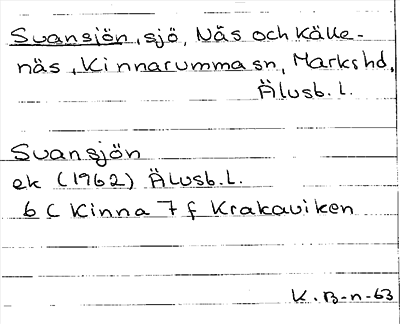 Svansjön, sjö, Näs och Källe-
näs, Kinnarumma sn, Marks hd,
Älvsb. l.
Svansjön
ek (1962) Älvsb. l.
6 C Kinna 7 f Krakaviken
K. B-n-63